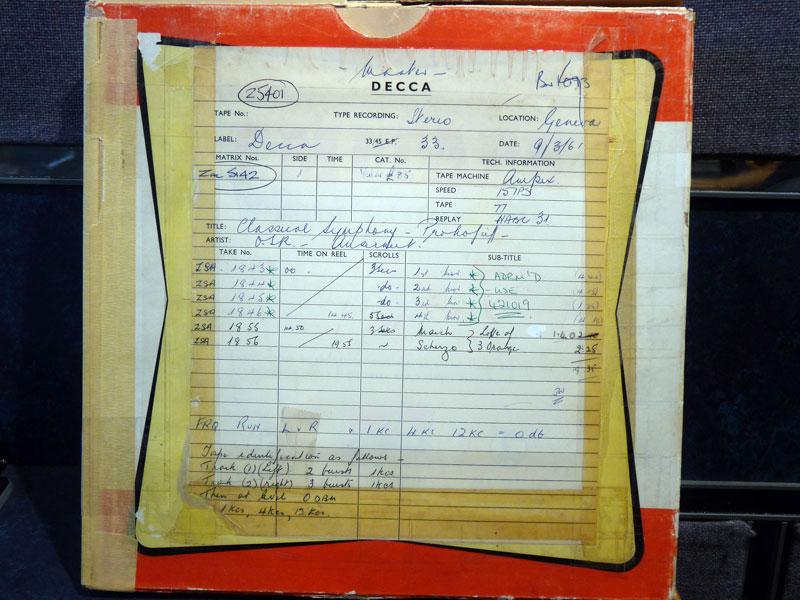 - Master -
DECCA
25401
TAPE No.: TYPE RECORDING: Stereo LOCATION: Geneva
LABEL: Decca 33/45 E.P. 33. DATE: 9/3/61
MATRIX Nos. SIDE TIME CAT. No. TECH. INFORMATION
5142 1 TAPE MACHINE Ampex.
SPEED 15 IPS
TAPE 77
REPLAY
TITLE: Classical Symphony - Prokofieff -
ARTIST: OSR - Ansermet.
TAKE No. TIME ON REEL SCROLLS SUB-TITLE
ZSA. 1843 * 00. 3 Secs 1st Mov * ADRM'D
ZSA. 1844 * -do- 2nd Mov * - USE
ZSA 1845 * -do- 3rd Mov * 421019
ZSA 1846 * 14.45. 4th Mov *
ZSA 1855 14.50 3 Secs March Love of 1.40
ZSA 1856 19.55 ~ Scherzo 3 Orange
FRQ RUN L & R 1 KC 4 KC 12 KC = 0 dB
Tape identification as follows -
Track (1) (Left) 2 bursts 1 Kcs
Track (2) (right) 3 bursts 1 Kcs
Then at level 0 DBM
1 Kcs, 4 Kcs, 12 Kcs.